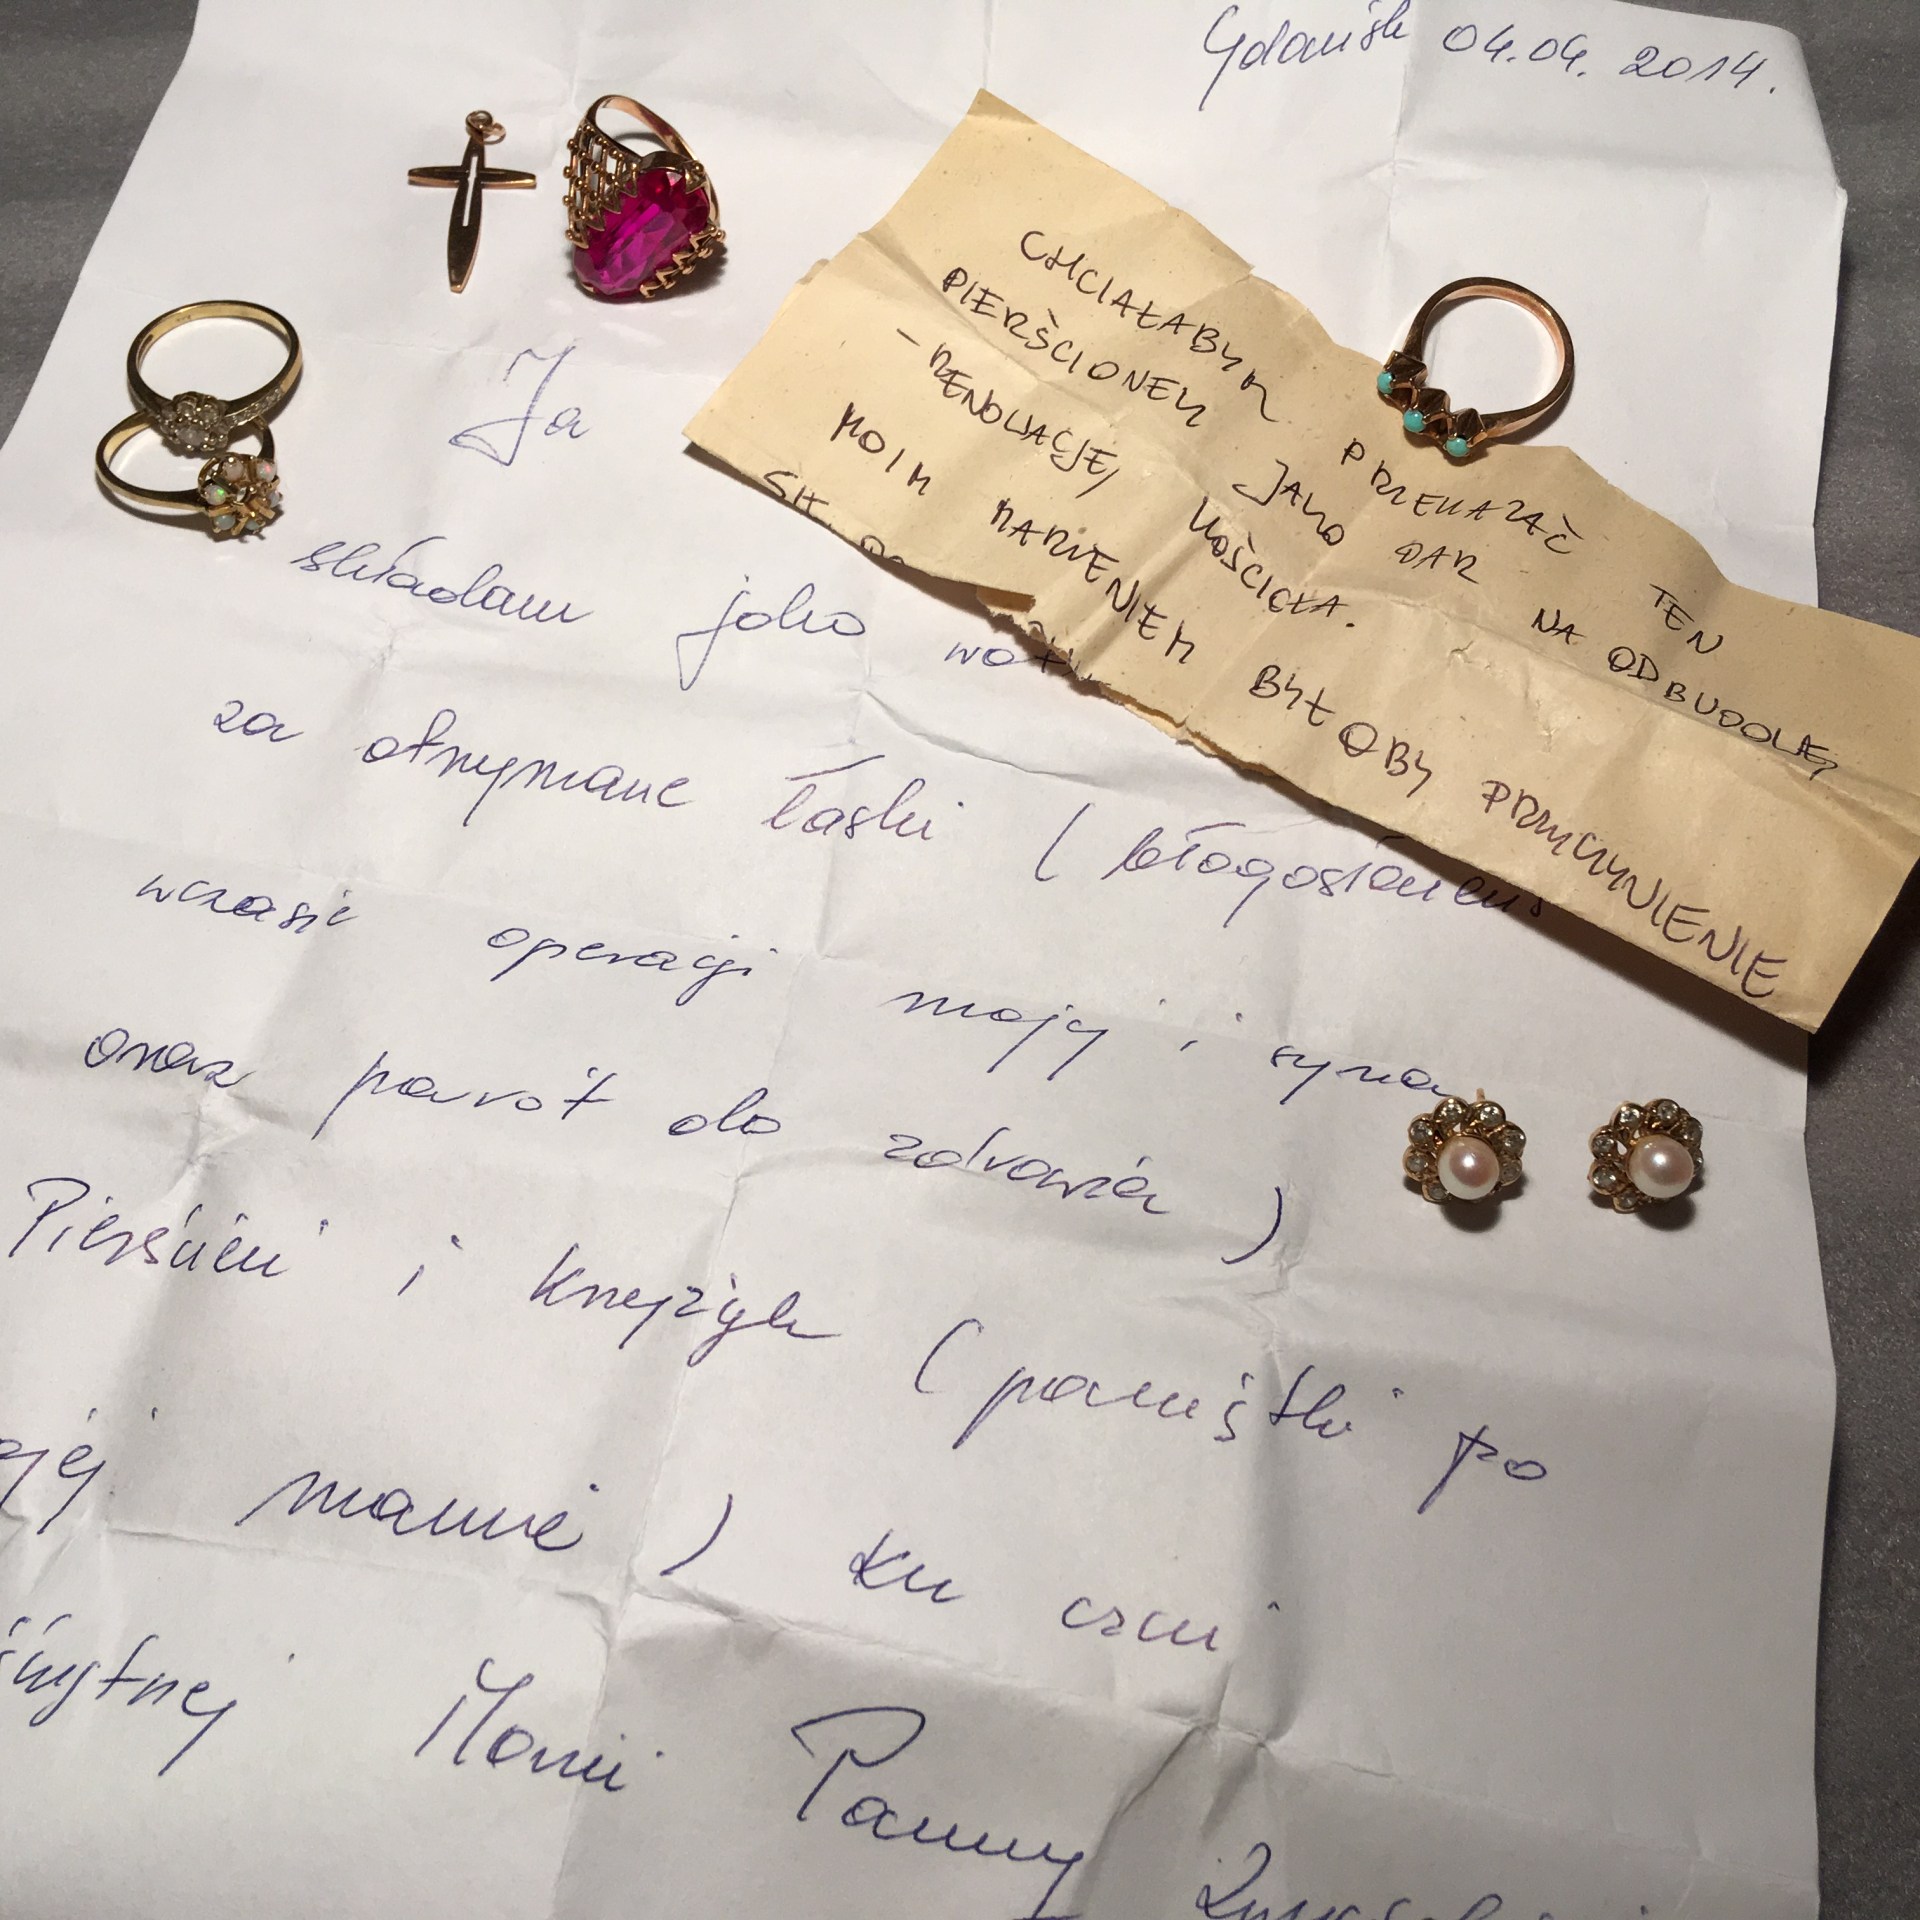 Gdańsk 04.04.2014.
Ja
składam jako
za otrzymane łaski (
wczasie operacji mojej i syna
oraz powrót do zdrowia)
Pierścień i krzyżyk (pamiątki po
mamie) ku czci
Marii Panny
CHCIAŁABYM PRZEKAZAĆ TEN
PIERŚCIONEK JAKO DAR NA ODBUDOWĘ
- RENOWACJĘ KOŚCIOŁA.
MOIM MARZENIEM BYŁOBY PRZYCZYNIENIE